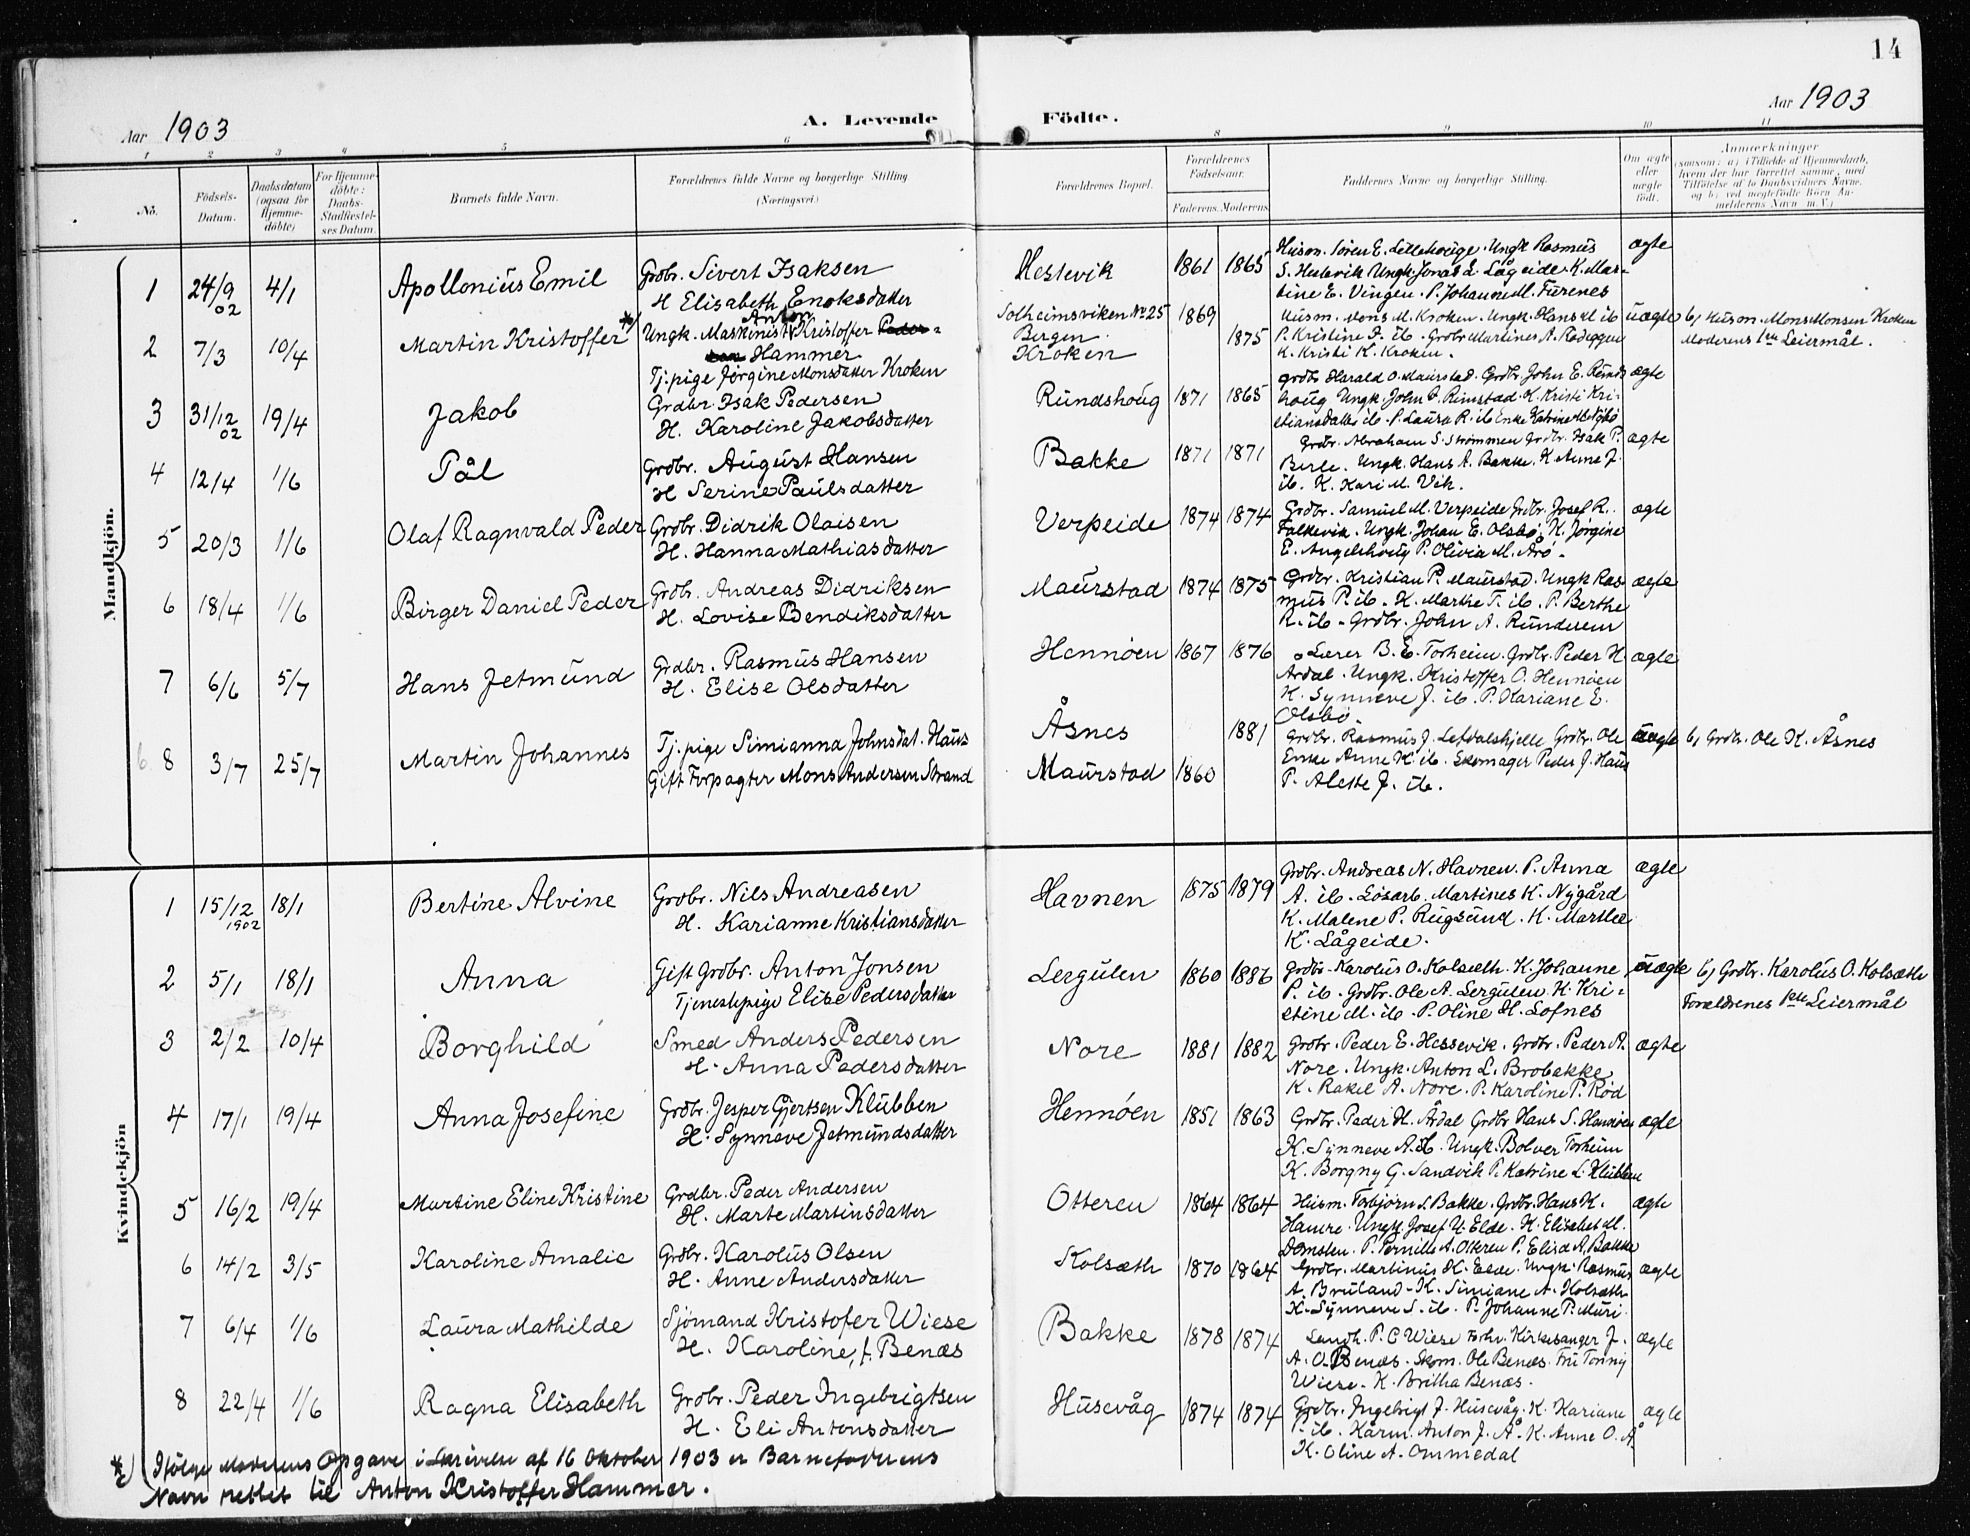 14
Aar 1903
A. Levende Födte.
Aar 1903
1 2 3 4 5 6 8 9 10 11
No.
Födsels-Datum.
Daabsdatum (ogsaa for Hjemme-döbte)
For Hjemme-döbte: Daabs-Stadfæstel-ses Datum.
Barnets fulde Navn.
Forældrenes fulde Navne og borgerlige Stilling (Næringsvei)
Forældrenes Bopæl.
Forældrenes Födselsaar.
Faderens. Moderens.
Faddernes Navne og borgerlige Stilling.
Om ægte eller uægte födt.
Anmærkninger
(saasom: a) i Tilfælde af Hjemmedaab, hvem der har forrettet samme, med Tilföielse af to Daabsvidners Navne, og b) ved uægtefödte Börn An-melderens Navn m. V.)
Mandkjön.
1 24/9 02 4/1 Apollonius Emil
Grdbr. Sivert Isaksen
H Elisabeth Enoksdatter
Hestevik 1861 1865
Husm. Sören E. Lillehouge. Ungk Rasmus
S. Hestevik Ungk. Jonas E. Lågeide. K. Mar-
tine E. Vingen. P. Johanne M. Furenes
ægte
2 7/3 10/4 Martin Kristoffer *)
Anton
Ungk. Maskinist Kristoffer Peder-
sen Hammer
Tj.pige Jörgine Monsdatter Kroken
Solheimsviken No 25 1869
Bergen
Kroken 1875
Husm. Mons M. Kroken. Ungk. Hans M ib
P. Kristine I. ib. Grdbr Martines A. Rödeggen
K. Kristi K. Kroken.
uægte
b, Husm. Mons Monsen Kroken
Moderens 1ste Leiermål.
3 31/12 02 19/4 Jakob
Grdbr Isak Pedersen
H. Karoline Jakobsdatter
Rundshoug 1871 1865
Grdbr Harald O. Maurstad. Grdbr. John E. Runds
houg Ungk. John P. Rimstad. K. Kristi Kri-
stiansdatter ib. P. Laura R. ib Enke
ægte
4 12/4 1/6 Pål
Grdbr. August Hansen
H Serine Paulsdatter
Bakke 1871 1871
Grdbr. Abraham S. Strömmen Grdbr. Isak P.
Berle. Ungk. Hans A. Bakke. K. Anne J.
ib. K. Kari M. Vik.
ægte
5 20/3 1/6 Olaf Ragnvald Peder
Grdbr. Didrik Olaisen
H. Hanna Mathiasdatter
Verpeide 1874 1874
Grdbr. Samuel M. Verpeide Grdbr. Josef R.
Falkevik. Ungk. Johan E. Olsbö. K. Jörgine
E. Angelshoug P. Olivia M. Årö.
ægte
6 18/4 1/6 Birger Daniel Peder
Grdbr. Andreas Didriksen
H. Lovise Bendiksdatter
Maurstad 1874 1875
Grdbr. Kristian P. Maurstad. Ungk Ras-
mus P. ib. K. Marthe T. ib. P. Berthe
K. ib. Grdbr. John A. Runderem
ægte
7 6/6 5/7 Hans Jetmund
Grdbr. Rasmus Hansen
H. Elise Olsdatter
Hennöen 1867 1876
Lærer B. E. Torheim. Grdbr. Peder H
Årdal. Ungk. Kristoffer O. Hennöen
K. Synneve J. ib. P. Mariane E.
Olsbö.
ægte
8 3/7 25/7 Martin Johannes
Tj.pige Simianna Johnsdat. Haus
Gift Forpagter Mons Andersen Strand
Åsnes 1881
Maurstad 1860
Grdbr. Rasmus J. Lefdalskjelle Grdbr. Ole
Enke Anne K. ib. Skomager Peder J. Haus
P. Alette J. ib.
uægte
b, Grdbr. Ole K. Åsnes
Kvindekjön
1 15/12 1902 18/1 Bertine Alvine
Grdbr. Nils Andreasen
H. Karianne Kristiansdatter
Havnen 1875 1879
Grdbr. Andreas N. Havnen. P. Anna
A. ib. Lösarb. Martines K. Nygård
K. Malene P. Rugsund. K. Marthe
K. Lågeide.
ægte
2 5/1 18/1 Anna
Gift Grdbr. Anton Jonsen
Tjenestepige Elise Pedersdatter
Lergulen 1860 1886
Grdbr. Karolus O. Kolsæth. K. Johanne
P. ib. Grdbr. Ole A. Lergulen K. Kri-
stine M. ib. P. Oline H. Lofnes
uægte
b, Grdbr. Karolus O. Kolsæth
Forældrenes 1ste Leiermål
3 2/2 10/4 Borghild
Smed Anders Pedersen
H. Anna Pedersdatter
Nore 1881 1882
Grdbr. Peder E. Hessevik. Grdbr. Peder A.
Nore. Ungk. Anton L. Brobakke
K. Rakel A. Nore. P. Karoline P. Röd
ægte
4 17/1 19/4 Anna Josefine
Grdbr. Jesper Gjertsen Klubben
H. Synneve Jetmundsdatter
Hennöen 1851 1863
Grdbr. Peder H. Årdal Grdbr Hans S. Hennöen
K. Synneve A. ib. Ungk. Bolver Torheim
K. Borgny G. Sandvik P. Katrine L. Klubben
ægte
5 16/2 19/4 Martine Eline Kristine
Grdbr. Peder Andersen
H. Marte Martinsdatter
Otteren 1864 1864
Husm. Torbjörn S. Bakke. Grdbr. Hans K.
Hamre. Ungk. Josef U. Elde. K. Elisabet M.
Domsten. P. Pernille A. Otteren P. Elise A. Bakke
ægte
6 14/2 3/5 Karoline Amalie
Grdbr. Karolus Olsen
H. Anne Andersdatter
Kolsæth 1870 1864
Grdbr. Martinus H. Elde. Ungk. Rasmus
A. Bruland. K. Simiane A. Kolsæth
K. Synneve S. ib. P. Johanne P. Muri
ægte
7 6/4 1/6 Laura Mathilde
Sjömand Kristofer Wiese
H. Karoline, f. Benæs
Bakke 1878 1874
Landh. P. C Wiese forhv. Kirkesanger J.
A. O. Benæs. Skom. Ole Benæs. Fru Tonny
Wiese. K. Britha Benæs.
ægte
8 22/4 1/6 Ragna Elisabeth
Grdbr. Peder Ingebrigtsen
H. Eli Antonsdatter
Husevåg 1874 1874
Grdbr. Ingebrigt J. Husevåg. K. Kariane
P. ib. Kårm. Anton J. Å. K. Anne O. Å
K. Oline A. Ommedal
ægte
*) Ifölge Moderens Opgave i Skrivelse af 16 Oktober 1903 er Barnefaderens
Navn rettet til Anton Kristoffer Hammer.